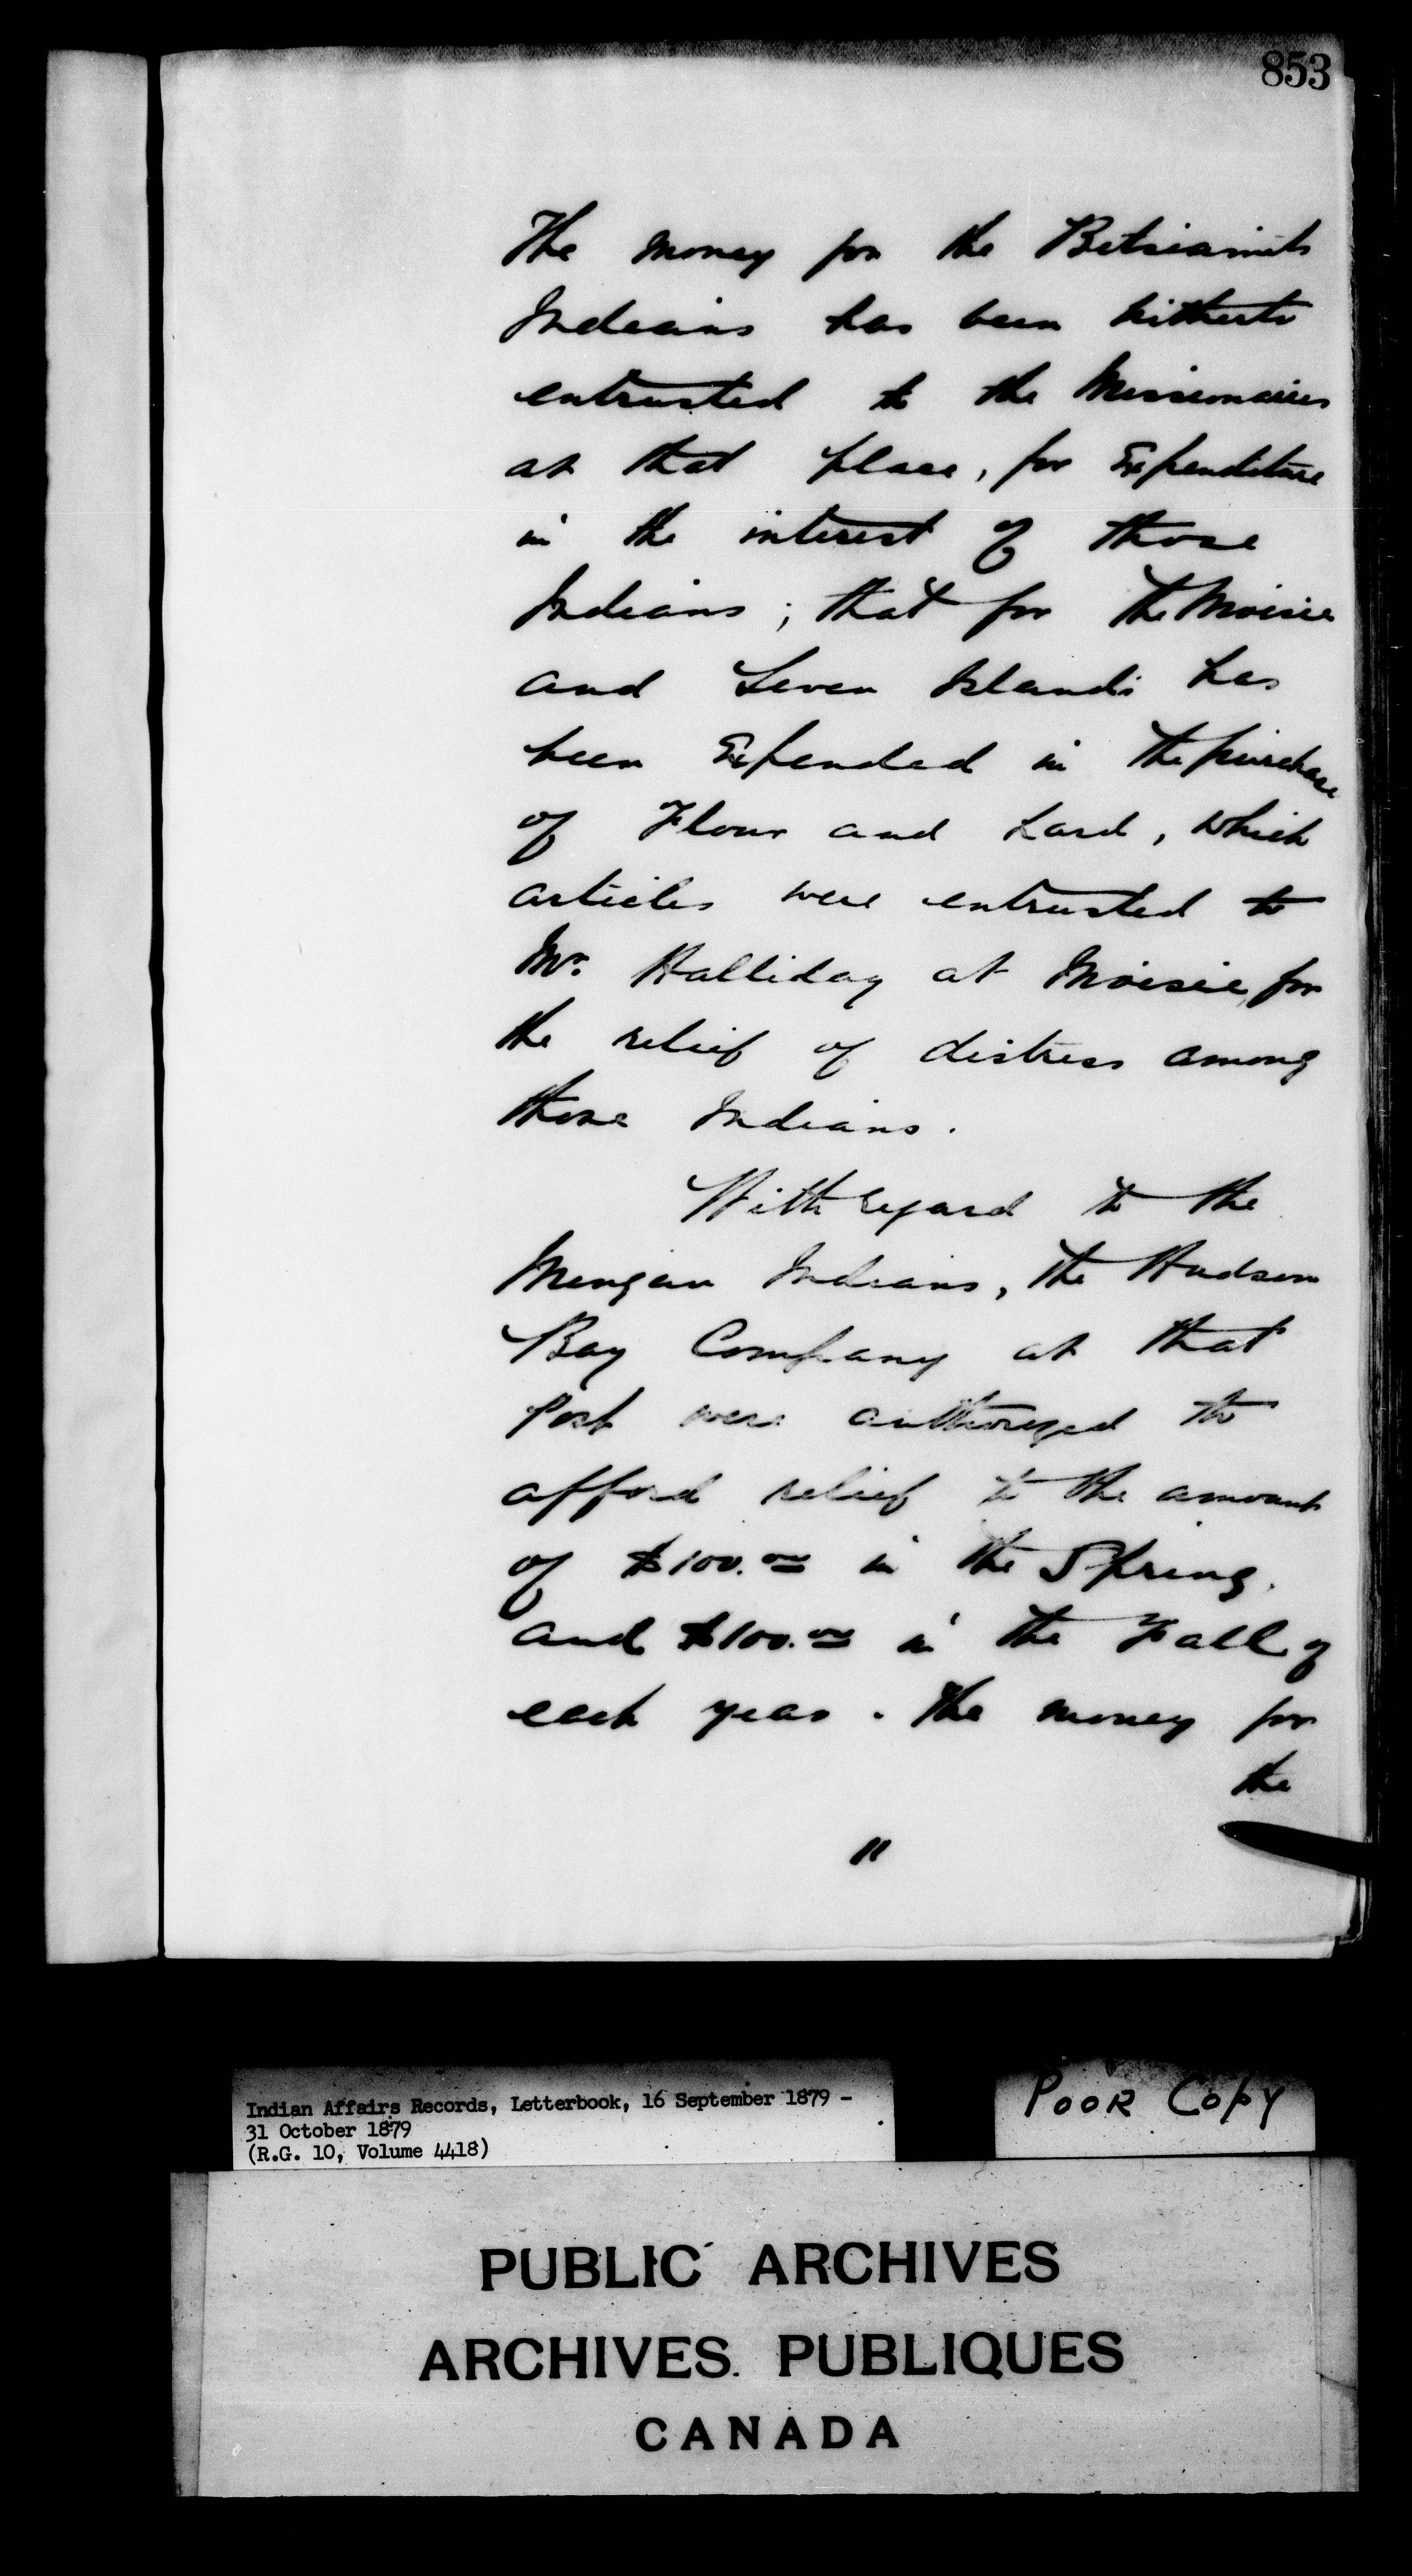 853
The money for the Betsiamits
Indians has been hitherto
entrusted to the Missionaries
at that place, for Expenditure
in the interest of those
Indians; that for the Moisie
and Seven Islands has
been Expended in the purchase
of Flour and Lard, which
articles were entrusted to
Mr. Halliday at Moisie, for
the relief of distress among
those Indians.
With regard to the
Mingan Indians, the Hudson
Bay Company at that
Post were authorized to
afford relief to the amount
of $100.00 in the Spring,
and $100.00 in the Fall of
each year. The money for
the
"
Indian Affairs Records, Letterbook, 16 September 1879 -
31 October 1879
(R.G. 10, Volume 4418)
POOR COPY
PUBLIC ARCHIVES
ARCHIVES PUBLIQUES
CANADA